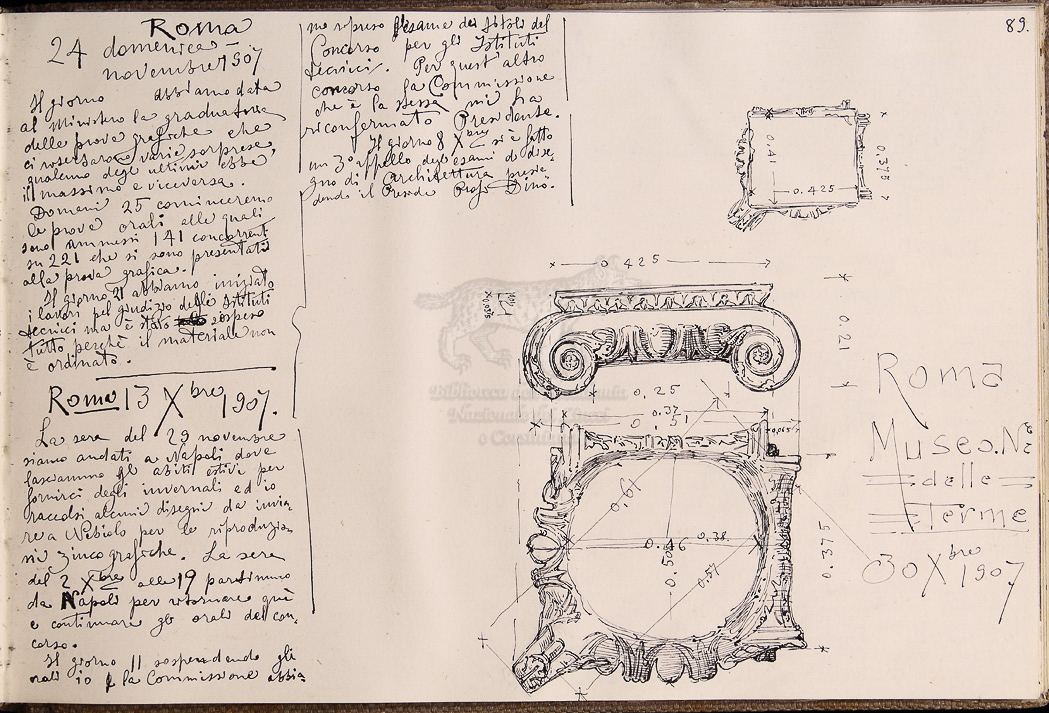 Roma
24 domenica
novembre 1907
Il giorno abbiamo data
al Ministero la graduatoria
delle prove grafiche che
ci riserbarono varie sorprese,
qualcuno degli ultimi ebbe
il massimo e viceversa.
Domani 25 cominceremo
le prove orali alle quali
sono ammessi 141 concorrenti
su 221 che si sono presentati
alla prova grafica.
Il giorno 21 abbiamo iniziato
i lavori pel giudizio degli Istituti
tecnici ma è stato sospeso
tutto perchè il materiale non
è ordinato.
Roma 13 Xbre 1907.
La sera del 29 novembre
siamo andati a Napoli dove
lasciammo gli abiti estivi per
fornirci degli invernali ed io
raccolsi alcuni disegni da invia-
re a Nebiolo per le riproduzio-
ni zincografiche. La sera
del 2 Xbre alle 19 partimmo
da Napoli per ritornare quì
e continuare gli orali del con-
corso.
Il giorno 11 sospendendo gli
orali io e la Commissione abbia-
mo ripreso l'esame dei titoli del
Concorso per gli Istituti
tecnici. Per quest'altro
concorso la Commissione
che è la stessa mi ha
riconfermato Presidente.
Il giorno 8 Xbre si è fatto
un 3º appello degli esami di dise-
gno di Architettura presie-
dendo il Preside Prof. Dino.
89.
0.41
0.425
0.375
0.425
0.21
0.25
0.37
0.51
0.61
0.46
0.38
0.50
0.57
0.375
Roma
Museo Ne
delle
Terme
30 Xbre 1907
Biblioteca dell'Accademia
Nazionale dei Lincei
e Corsiniana